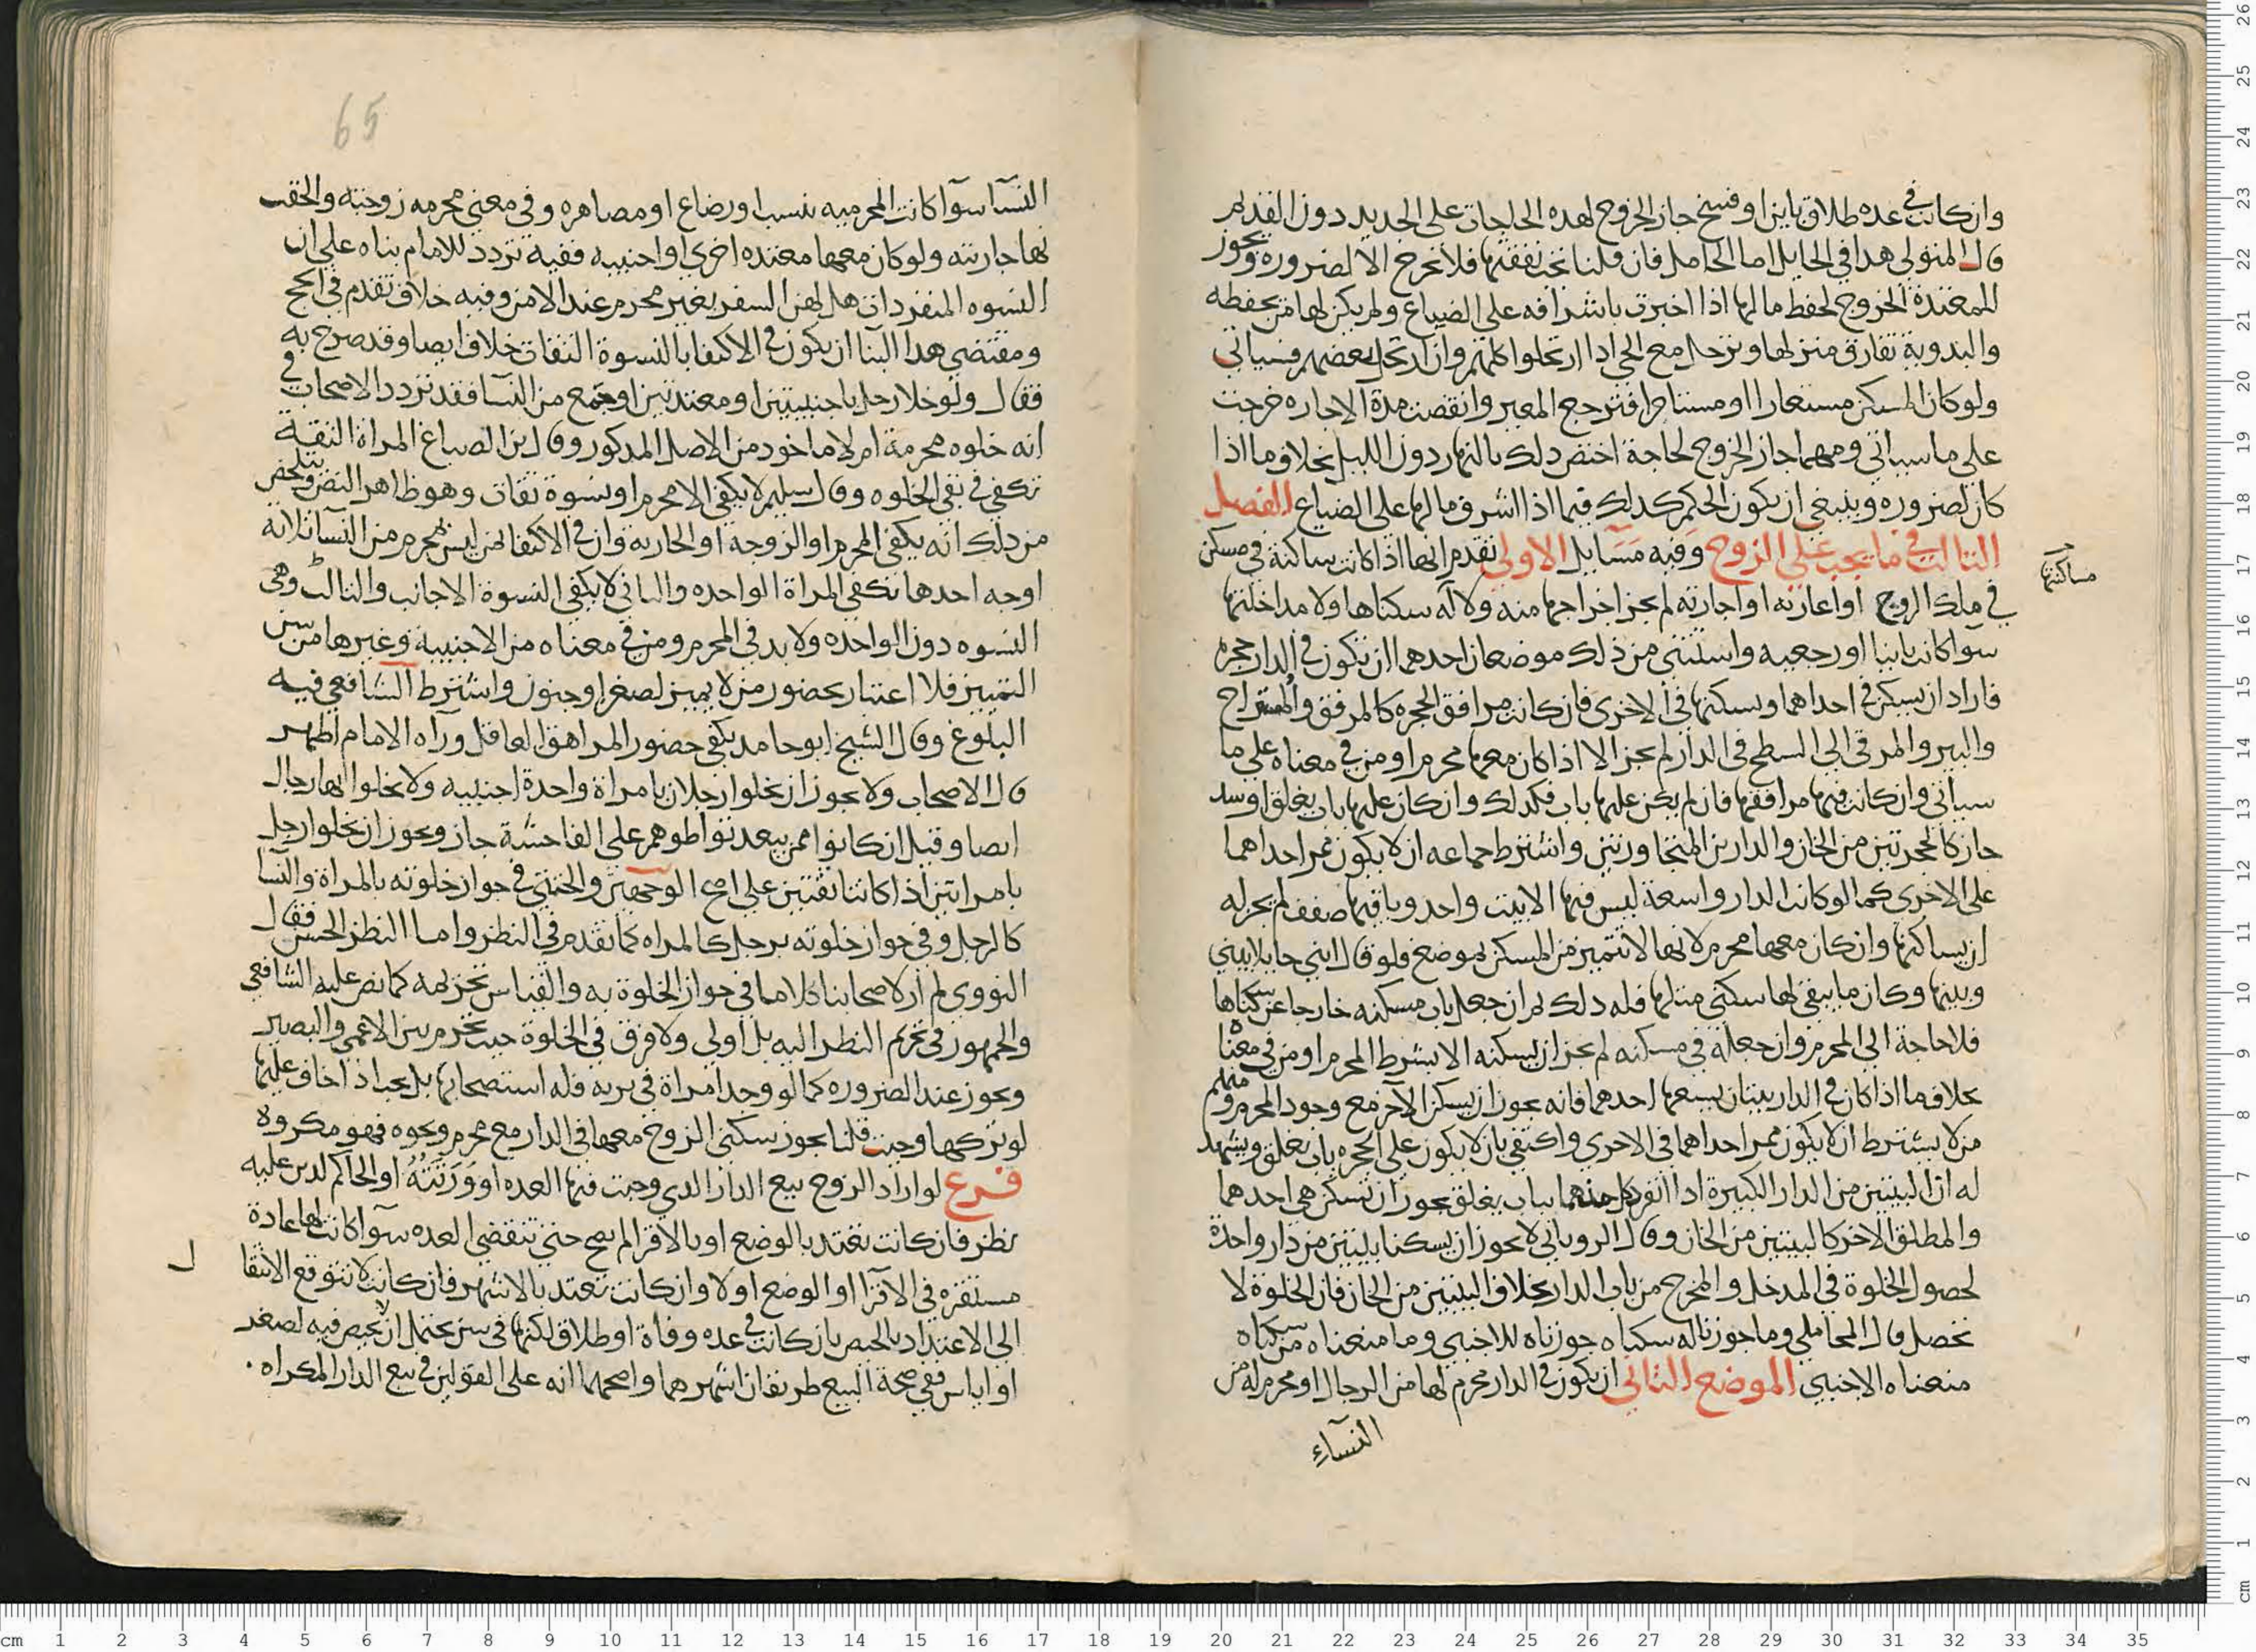 وان كانت في عده طلاق باين او فسخ جاز الخروج لهده الحاجات على الجديد دون القديم
قال المتولي هدا في الحايل اما الحامل فان قلنا تجب نفقتها فلا تخرج الا لضروره ويجوز
للمعتدة الخروج لحفظ مالها اذا اخبرت باشرافه على الضياع ولم يكن لها من يحفظه
والبدوية تفارق منزلها وترحل مع الحي اذا ارتحلوا كلهم وان ارتحل بعضهم فسياتي
ولو كان المسكن مستعارا او مستاجرا فترجع المعير وانقضت مدة الاجاره خرجت
على ما سياتي ومهما جاز الخروج لحاجة اختص دلك بالنهار دون الليل بخلاف ما اذا
كان لضروره وينبغي ان يكون الحكم كدلك فيما اذا اشرف مالها على الضياع الفصل
الثالث في ما يجب على الزوج وفيه مسايل الاولى تقدم انها اذا كانت ساكنة في مسكن
مساكنتها
في ملك الزوج او اعارته او اجارته لم يجز اخراجها منه ولا له سكناها ولا مداخلتها
سوا كانت باينا او رجعيه واستثنى من ذلك موضعان احدهما ان تكون في الدار حجرة
فاراد ان يسكن في احداهما ويسكنها في الاخرى فان كانت مرافق الحجره كالمرفق والمستراح
والبير والمرقى الى السطح في الدار لم يجز الا اذا كان معها محرم او من في معناه على ما
سياتي وان كانت فيها مرافقها فان لم يكن عليها باب فكدلك وان كان عليها باب يغلق او سد
جاز كالحجرتين من الخان والدارين المتجاورتين واشترط جماعه ان لا يكون ممر احداهما
على الاخرى كما لو كانت الدار واسعة ليس فيها الا بيت واحد وباقيها صفف لم يجز له
ان يساكنها وان كان معها محرم لانها لا تتميز من المسكن بموضع فلو قال ابني حايلا بيني
وبينها وكان ما يبقى لها سكنى مثلها فله دلك ثم ان جعل باب مسكنه خارجا عن سكناها
فلا حاجة الى المحرم وان جعله في مسكنه لم يجز ان يسكنه الا بشرط المحرم او من في معناه
بخلاف ما اذا كان في الدار بيتان يسعها احدهما فانه يجوز ان يسكن الآخر مع وجود المحرم ومنهم
من لا يشترط ان لا يكون ممر احداهما في الاخرى واكتفى بان لا يكون على الحجره باب يغلق ويشهد
له ان البيتين من الدار الكبيرة اذا انفرد كل منهما بباب يغلق يجوز ان تسكن هي احدهما
والمطلق الاخر كالبيتين من الخان وقال الروياني لا يجوز ان يسكنا بيتين من دار واحدة
لحصول الخلوة في المدخل والمخرج من باب الدار بخلاف البيتين من الخان فان الخلوة لا
تحصل قال المحاملي وما جوزنا له سكناه جوزناه للاجنبي وما منعناه من سكناه
منعناه الاجنبي الموضع الثاني ان يكون في الدار محرم لها من الرجال او محرم له من
النساء
65
النسآ سوآ كانت المحرميه بنسب او رضاع او مصاهره وفي معنى محرمه زوجته والحقت
بها جاريته ولو كان معها معتده اخرى او اجنبيه ففيه تردد للامام بناه على ان
النسوه المنفردات هل لهن السفر بغير محرم عند الامن وفيه خلاف تقدم في الحج
ومقتضى هدا البنا ان يكون في الاكتفا بالنسوة الثقات خلاف ايضا وقد صرح به
فقال ولو خلا رجل باجنبيتين او معتدتين او بجمع من النسا فقد تردد الاصحاب في
انه خلوه محرمة ام لا ماخود من الاصل المدكور وقال ابن الصباغ المراة الثقة
تكفي في نفي الخلوه وقال سليم لا يكفي الا محرم او نسوة ثقات وهو ظاهر النص وتلخص
من دلك انه يكفي المحرم او الزوجة او الجاريه وان في الاكتفا بمن ليس بمحرم من النسآ ثلاثة
اوجه احدها تكفي المراة الواحده والثاني لا يكفي النسوة الاجانب والثالث وهى
النسوه دون الواحده ولا بد في المحرم ومن في معناه من الاجنبية وغيرها من سن
التمييز فلا اعتبار بحضور من لا يميز لصغر او جنون واشترط الشافعي فيه
البلوغ وقال الشيخ ابو حامد يكفي حضور المراهق العاقل ورآه الامام اظهر
قال الاصحاب ولا يجوز ان يخلوا رجلان بامراة واحدة اجنبيه ولا يخلوا بها رجال
ايضا وقيل ان كانوا ممن يبعد تواطوهم على الفاحشة جاز ويجوز ان يخلوا رجل
بامراتين اذا كانتا ثقتين على اصح الوجهين والخنثى في جواز خلوته بالمراة والنسا
كالرجل وفي جواز خلوته برجل كالمراه كما تقدم في النظر واما النظر الحسن فقال
النووي لم ار لاصحابنا كلاما في جواز الخلوة به والقياس تحريمه كما نص عليه الشافعي
والجمهور في تحريم النظر اليه بل اولى ولا فرق في الخلوة حيث تحرم بين الاعمى والبصير
ويجوز عند الضروره كما لو وجد امراة في بريه فله استصحابها بل يجب اذا خاف عليها
لو تركها وحيث قلنا يجوز سكنى الزوج معها في الدار مع محرم ونحوه فهو مكروه
فرع لو اراد الزوج بيع الدار الدي وجبت فيها العده او وَرَثَتُهُ او الحاكم لدين عليه
نظر فان كانت تعتد بالوضع او بالاقرا لم يصح حتى تنقضي العده سوآ كانت لها عادة
مستقره في الاقرآ او الوضع او لا وان كانت تعتد بالاشهر فان كانت لا تتوقع الانتقا
ل
الى الاعتداد بالحيض بان كانت في عده وفاة او طلاق لكنها في سن يحتمل ان لا تحيض فيه لصغر
او اياس ففي صحة البيع طريقان اشهرهما واصحهما انه على القولين في بيع الدار المكراه